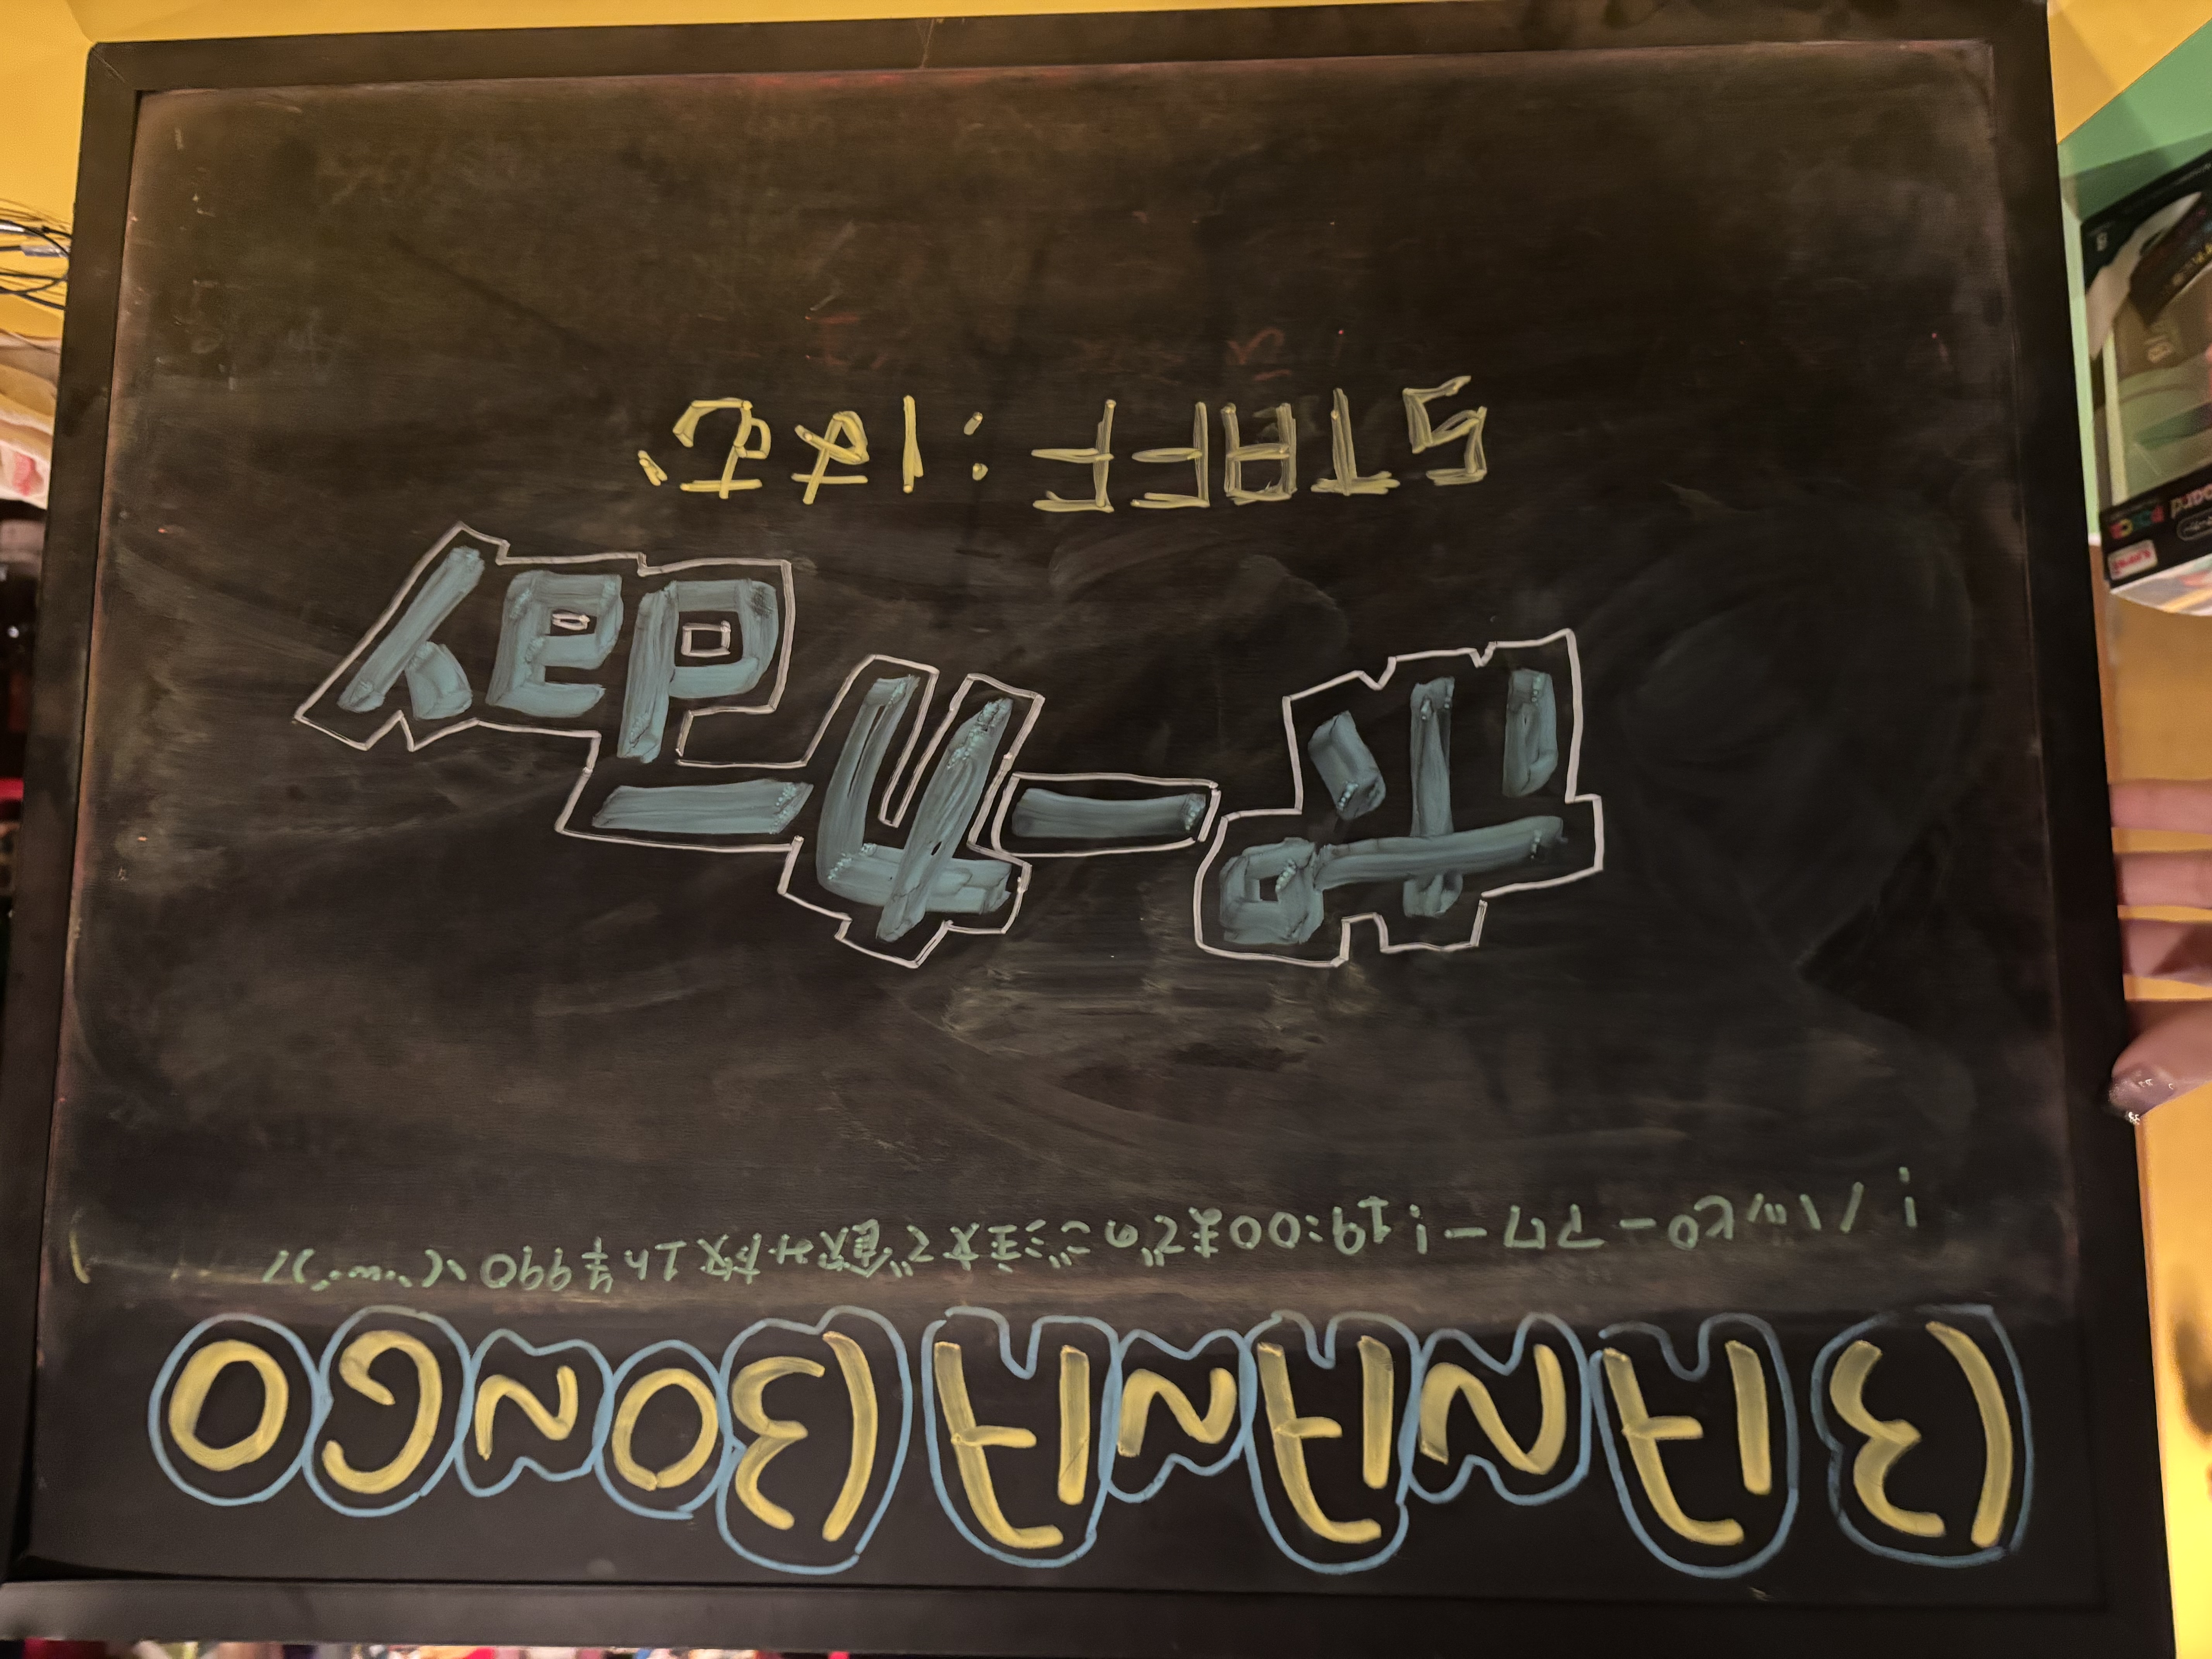 BANANA BONGO
! ハッピーアワー! 19:00までのご注文で飲み放1h¥990\(^ω^)/
ポーカーday
STAFF:はむ